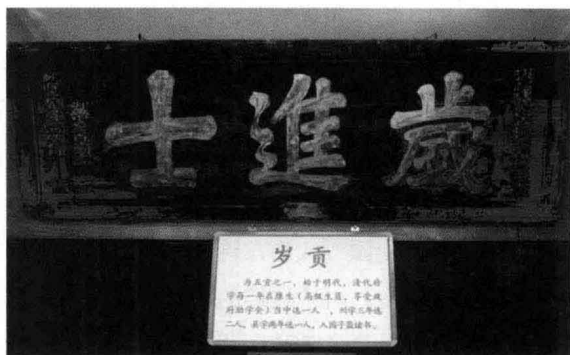 歲進士
岁贡
为五贡之一，始于明代，清代府
学每一年在廪生（高级生员，享受政
府助学金）当中选一人，州学三年选
二人，县学两年选一人，入国子监读书。